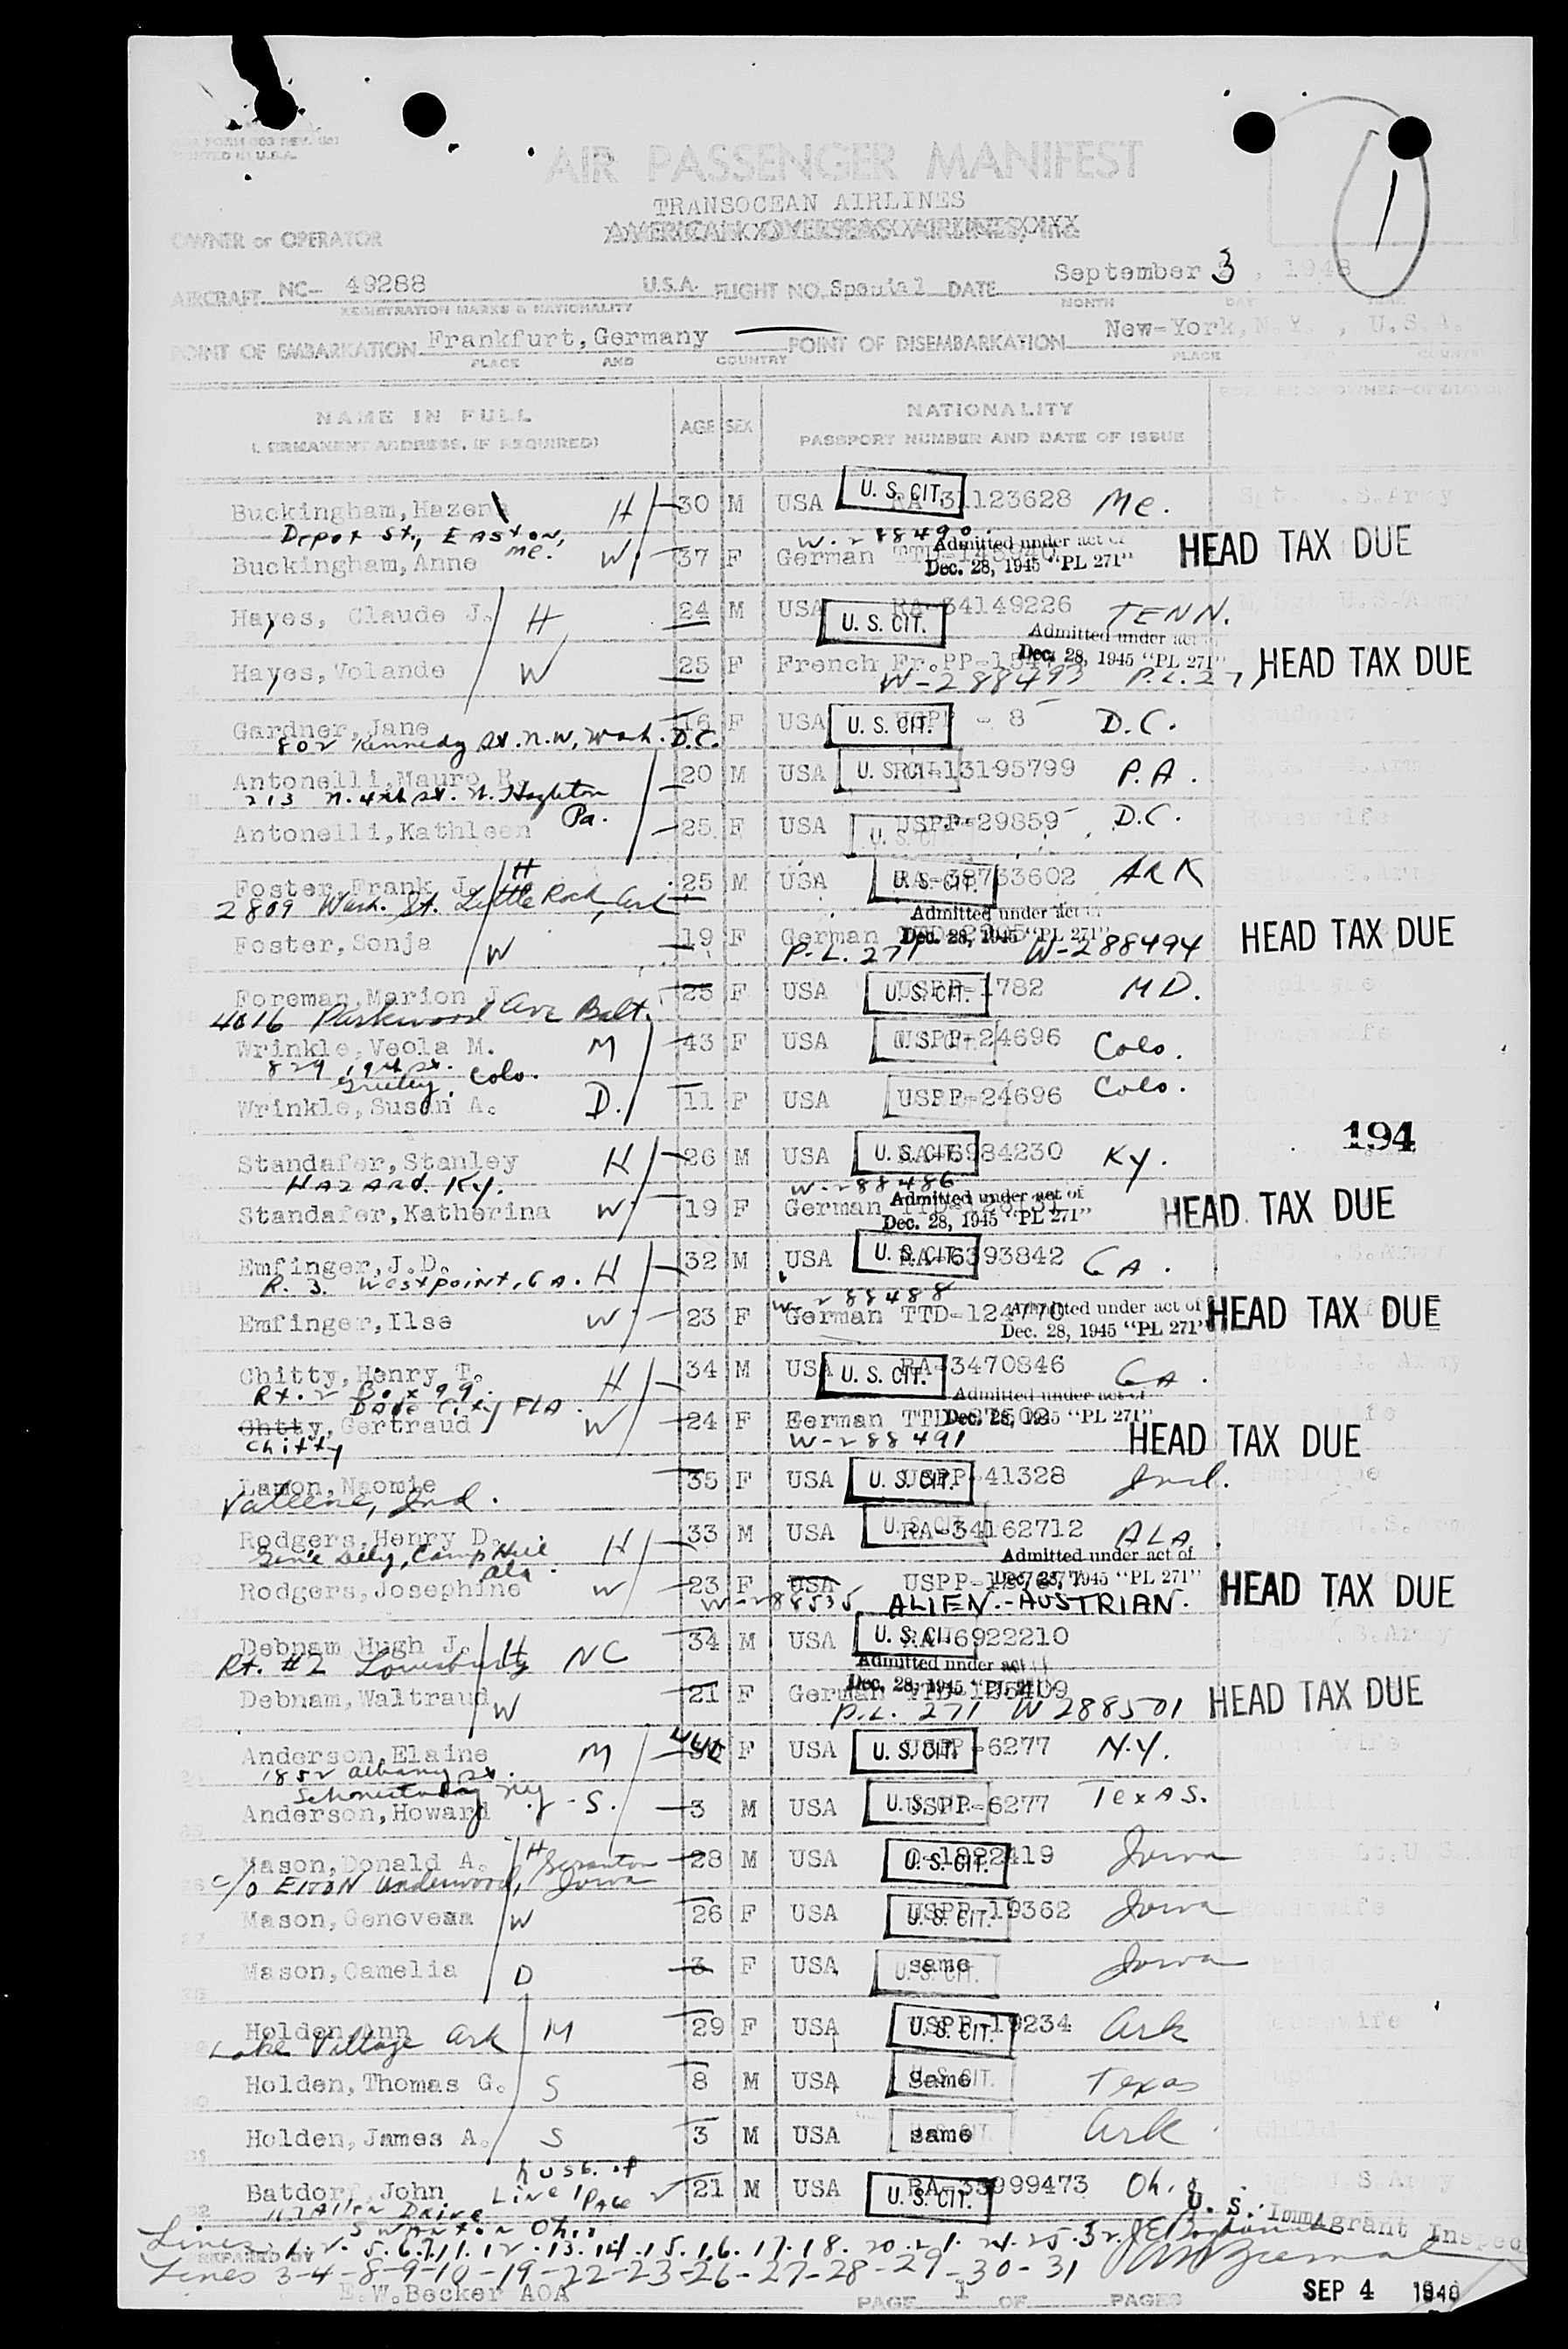 PRINTED IN U.S.A.
AIR PASSENGER MANIFEST
TRANSOCEAN AIRLINES
AMERICAN OVERSEAS AIRLINES, INC
1
OWNER or OPERATOR
AIRCRAFT NC- 49288 U.S.A. FLIGHT NO. Special DATE September 3, 1948
REGISTRATION MARKS & NATIONALITY MONTH DAY YEAR
POINT OF EMBARKATION Frankfurt, Germany POINT OF DISEMBARKATION New-York, N.Y., U.S.A.
PLACE AND COUNTRY PLACE COUNTRY
NAME IN FULL AGE SEX NATIONALITY
PERMANENT ADDRESS, IF REQUIRED) PASSPORT NUMBER AND DATE OF ISSUE
Buckingham, Hazen H 30 M USA U. S. CIT. RA-31123628 Me. Sgt. U.S.Army
Depot St., EASTON, Me. W-288490
Buckingham, Anne W 37 F German Admitted under act of Dec. 28, 1945 "PL 271" HEAD TAX DUE
Hayes, Claude J. H 24 M USA U. S. CIT. RA-34149226 TENN.
Hayes, Yolande W 25 F French Fr.PP- Admitted under act of Dec. 28, 1945 "PL 271" HEAD TAX DUE
W-288493 P.L.271
Gardner, Jane 16 F USA U. S. CIT. D.C.
802 Kennedy St. N.W, Wash. D.C.
Antonelli, Mauro R. 20 M USA U. S. CIT. 13195799 P.A.
213 N. 4th St. N. Hazleton Pa.
Antonelli, Kathleen 25 F USA U. S. CIT. USPP-29859 D.C.
Foster, Frank J. H 25 M USA U. S. CIT. ARK
2809 Wash. St. Little Rock, Ark
Foster, Sonja W 19 F German Admitted under act of Dec. 28, 1945 "PL 271" HEAD TAX DUE
P.L. 271 W-288494
Foreman, Marion J 25 F USA U. S. CIT. USPP-1782 MD.
4016 Parkwood Ave Balt.
Wrinkle, Veola M. M 43 F USA U. S. CIT. USPP-24696 Colo.
829 19th St. Greeley. Colo.
Wrinkle, Susan A. D. 11 F USA USPP-24696 Colo.
194
Standafer, Stanley H 26 M USA U. S. CIT. RA-6984230 Ky.
HAZARD. Ky. W-288486
Standafer, Katherina W 19 F German Admitted under act of Dec. 28, 1945 "PL 271" HEAD TAX DUE
Emfinger, J.D. H 32 M USA U. S. CIT. RA-6393842 GA.
R. 3. Westpoint, GA. W-288488
Emfinger, Ilse W 23 F German TTD-124770 Admitted under act of Dec. 28, 1945 "PL 271" HEAD TAX DUE
Chitty, Henry T. H 34 M USA U. S. CIT. RA-3470846 GA.
Rt. 2 Box 99. Dade City FLA.
Chtty, Gertraud W 24 F German TTD- Admitted under act of Dec. 28, 1945 "PL 271" HEAD TAX DUE
Chitty W-288491
Lamon, Naomie 35 F USA U. S. CIT. USPP-41328 Ind. Employee
Valeene, Ind.
Rodgers, Henry D. H 33 M USA U. S. CIT. RA-34162712 ALA.
Gen'l Dely, Camp Hill Ala.
Rodgers, Josephine W 23 F USA USPP- Admitted under act of Dec. 28, 1945 "PL 271" HEAD TAX DUE
W-288535 ALIEN.-AUSTRIAN.
Debnam Hugh J. H 34 M USA U. S. CIT. RA-6922210
Rt. #2 Louisburg NC
Debnam, Waltraud W 21 F German Admitted under act Dec. 28, 1945 "PL 271" HEAD TAX DUE
P.L. 271 W 288501
Anderson, Elaine M F USA U. S. CIT. USPP-6277 N.Y.
1852 Albany St. Schenectady NY
Anderson, Howard S. 3 M USA U. S. CIT. USPP-6277 TexAS.
Mason, Donald A. H 28 M USA U. S. CIT. O-1822419 Iowa
c/o ElTON Underwood, Scranton Iowa
Mason, Geneveaa W 26 F USA U. S. CIT. USPP-19362 Iowa Housewife
Mason, Camelia D 3 F USA U. S. CIT. same Iowa
Holden, Ann M 29 F USA U. S. CIT. USPP-19234 Ark Housewife
Lake Village Ark
Holden, Thomas G. S 8 M USA U. S. CIT. same Texas
Holden, James A. S 3 M USA U. S. CIT. same Ark Child
Batdorf, John husb. of Line 1 Page 2 21 M USA U. S. CIT. Oh.
Allen Drive Swanton Ohio
U. S. Immigrant Inspec
Lines 1. 2. 5. 6. 7. 11. 12. 13. 14. 15. 16. 17. 18. 20. 21. 24. 25. 32.
Lines 3-4-8-9-10-19-22-23-26-27-28-29-30-31
PREPARED BY
E.W.Becker AOA PAGE 1 OF PAGES
SEP 4 1948